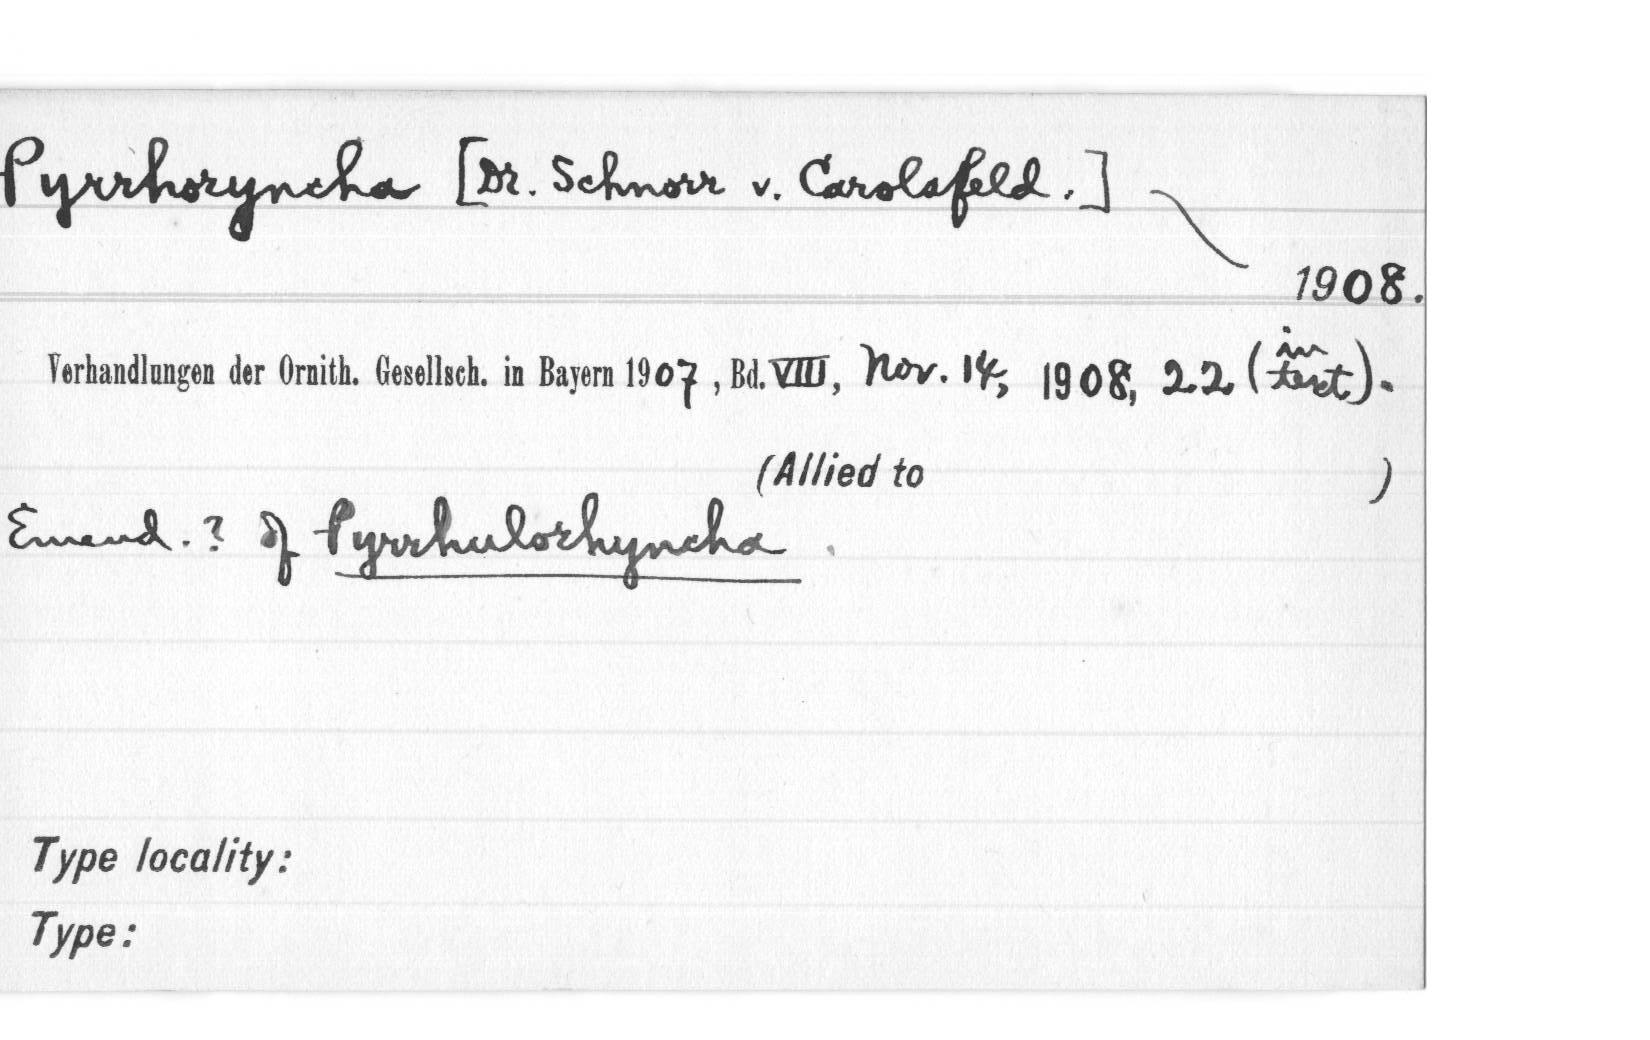 Pyrrhoryncha [Dr. Schnorr v. Carolsfeld.]
1908.
Verhandlungen der Ornith. Gesellsch. in Bayern 1907, Bd. VIII, Nov. 14, 1908, 22 (in text).
(Allied to )
Emend. ? of Pyrrhulorhyncha.
Type locality:
Type: